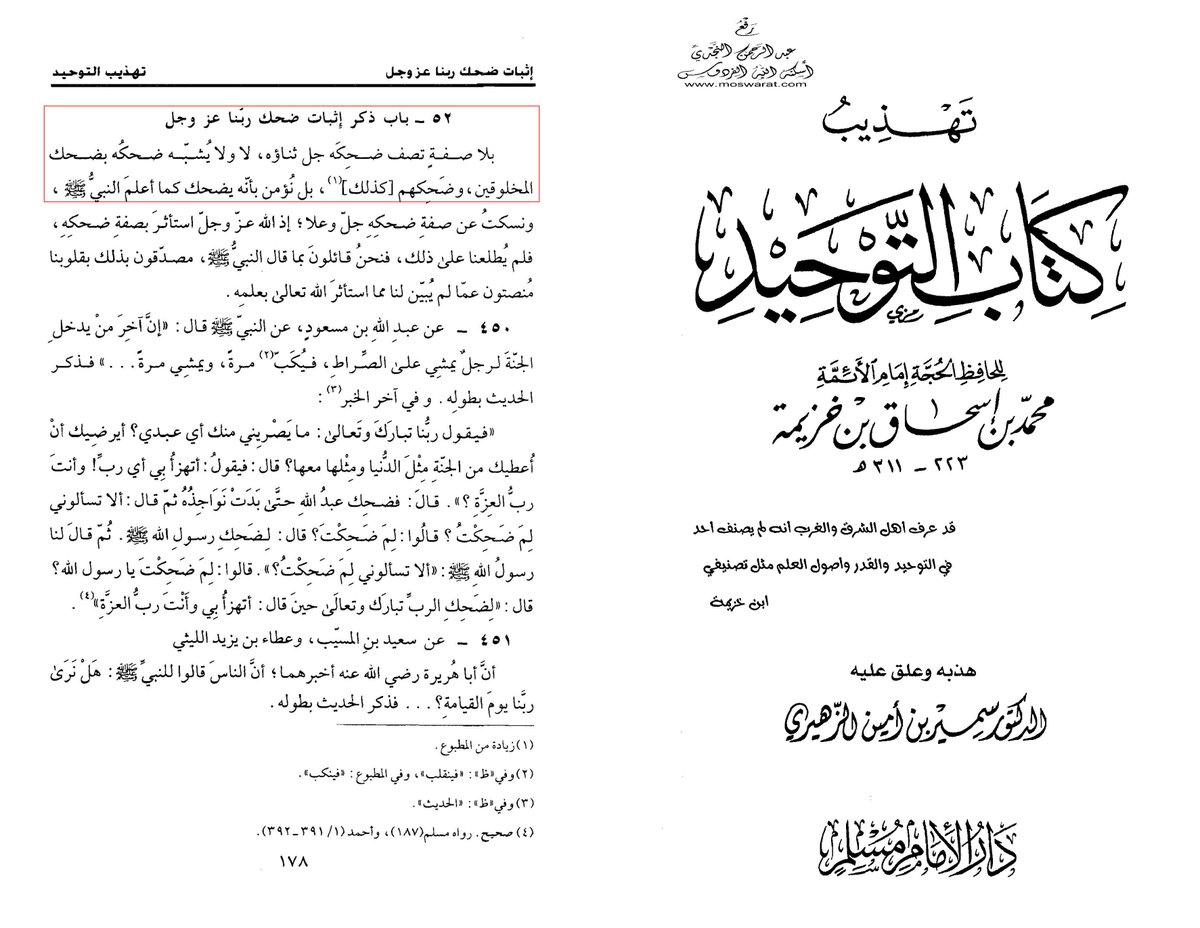 رفع
عبد الرحمن النجدي
أسكنه الله الفردوس
www.moswarat.com
تَهْذِيبُ
كِتَابِ التَّوْحِيدِ
لِلحَافِظِ الحُجَّةِ إِمَامِ الأَئِمَّةِ
محمّد بن إسحاق بن خزيمة
٢٢٣ – ٣١١ هـ
قد عرف أهل الشرق والغرب أنه لم يصنف أحد
في التوحيد والقدر وأصول العلم مثل تصنيفي
ابن خزيمة
هذبه وعلق عليه
الدكتور سمير بن أمين الزهيري
دَارُ الإِمَامِ مُسْلِمٍ
إثبات ضحك ربنا عز وجل
تهذيب التوحيد
٥٢ ـ باب ذكر إثبات ضحك ربّنا عز وجل
بلا صفةٍ تصف ضحكَه جل ثناؤه، لا ولا يُشبّه ضحكُه بضحك
المخلوقين، وضَحِكهم [كذلك](١)، بل نُؤمن بأنّه يضحك كما أعلمَ النبيُّ ﷺ،
ونسكتُ عن صفةِ ضحكهِ جلّ وعلا؛ إذ الله عزّ وجلّ استأثرَ بصفةِ ضحكهِ،
فلم يُطلعنا على ذلك، فنحنُ قائلونَ بما قال النبيُّ ﷺ، مصدّقون بذلك بقلوبنا
مُنصتون عمّا لم يُبيّن لنا مما استأثرَ الله تعالىٰ بعلمِه.
٤٥٠ ـ عن عبدِ اللهِ بن مسعودٍ، عن النبيّ ﷺ قال: «إنَّ آخِرَ منْ يدخلِ
الجنّةَ لرجلٌ يمشِي علىٰ الصِّراطِ، فيُكَبّ(٢) مرةً، ويمشِي مرةً...» فذكر
الحديث بطولِه. وفي آخر الخبر(٣):
«فيقول ربُّنا تباركَ وتَعالىٰ: ما يَصْرِيني منك أي عبدي؟ أيرضيك أنْ
أُعطيك من الجنّةِ مِثْلَ الدُّنيا ومِثْلها معها؟ قال: فيقولُ: أتهزأُ بِي أي ربِّ! وأنتَ
ربُّ العزَّةِ؟». قالَ: فضحك عبدُ اللهِ حتَّىٰ بَدَتْ نَوَاجِذُهُ ثمّ قال: ألا تسألوني
لِمَ ضَحكْتُ؟ قالُوا: لِمَ ضَحِكْتَ؟ قال: لِضحِكِ رسولِ اللهِ ﷺ. ثُمّ قالَ لنا
رسولُ اللهِ ﷺ: «ألا تسألوني لِمَ ضَحكْتُ؟». قالوا: لِمَ ضَحَكْتَ يا رسول الله؟
قال: «لِضحَكِ الربِّ تبارَك وتعالَىٰ حينَ قال: أتهزأُ بِي وأنْتَ ربُّ العزَّةِ»(٤).
٤٥١ ـ عن سعيد بنِ المسيّب، وعطاء بن يزيد الليثي
أنَّ أبا هُريرة رضي الله عنه أخبرهما؛ أنَّ الناسَ قالوا للنبيِّ ﷺ: هَلْ نَرَىٰ
ربَّنا يومَ القيامةِ؟... فذكر الحديث بطوله.
(١) زيادة من المطبوع.
(٢) وفي «ظ»: «فينقلب»، وفي المطبوع: «فينكب».
(٣) وفي «ظ»: «الحديث».
(٤) صحيح. رواه مسلم (١٨٧)، وأحمد (١/ ٣٩١ـ٣٩٢).
١٧٨